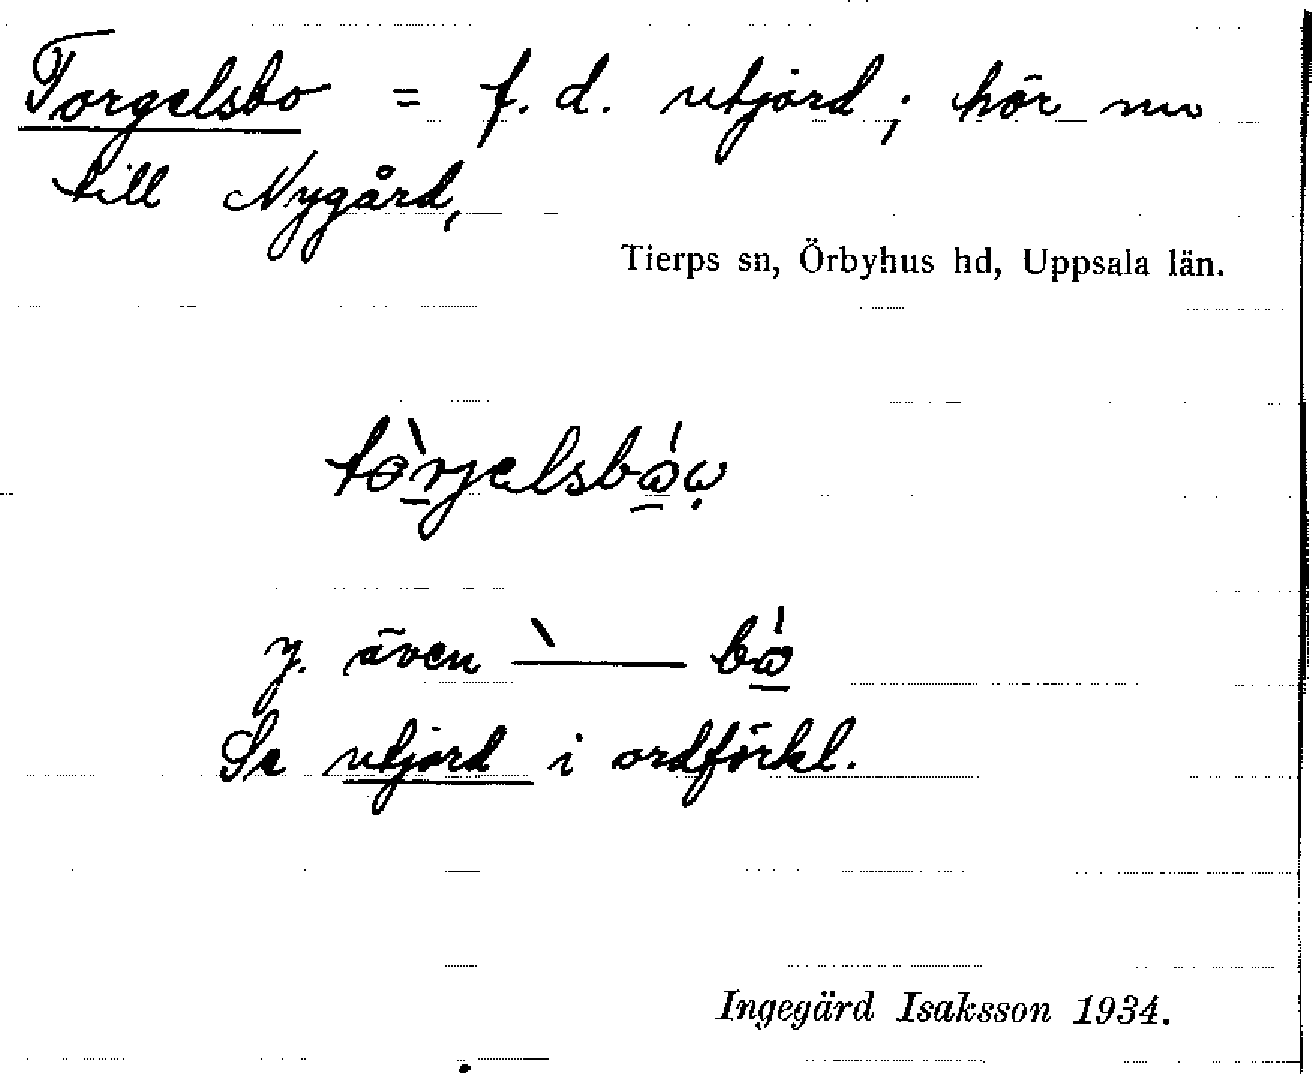 Torgelsbo = f. d. utjord; hör nu
till Nygård,
Tierps sn, Örbyhus hd, Uppsala län.
y. även ˋ——— 
Se utjord i ordförkl.
Ingegärd Isaksson 1934.